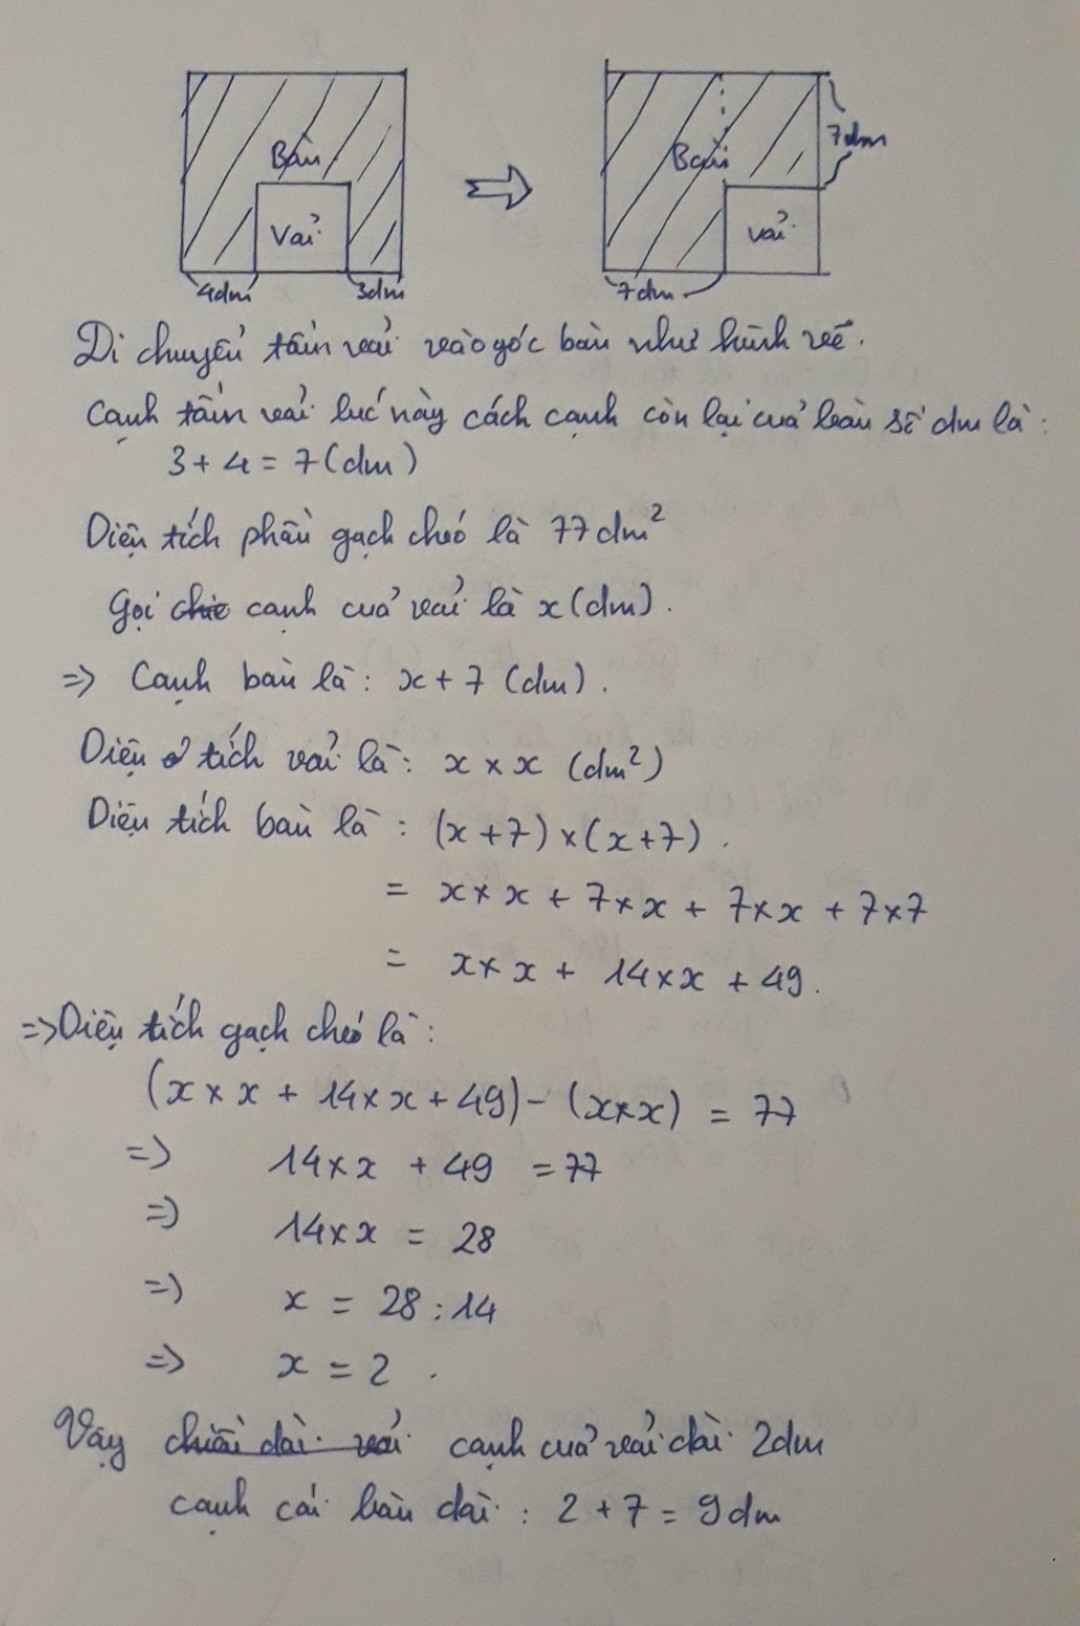 Bàn
Vải
4dm
3dm
Bàn
7dm
vải
7dm
Di chuyển tấm vải vào góc bàn như hình vẽ.
Cạnh tấm vải lúc này cách cạnh còn lại của bàn số dm là:
3 + 4 = 7 (dm)
Diện tích phần gạch chéo là 77 dm²
Gọi cạnh của vải là x (dm).
=> Cạnh bàn là: x + 7 (dm).
Diện tích vải là: x × x (dm²)
Diện tích bàn là: (x + 7) × (x + 7).
= x × x + 7 × x + 7 × x + 7 × 7
= x × x + 14 × x + 49.
=> Diện tích gạch chéo là:
(x × x + 14 × x + 49) - (x × x) = 77
=> 14 × x + 49 = 77
=> 14 × x = 28
=> x = 28 : 14
=> x = 2.
Vậy cạnh của vải dài 2dm
cạnh cái bàn dài: 2 + 7 = 9 dm